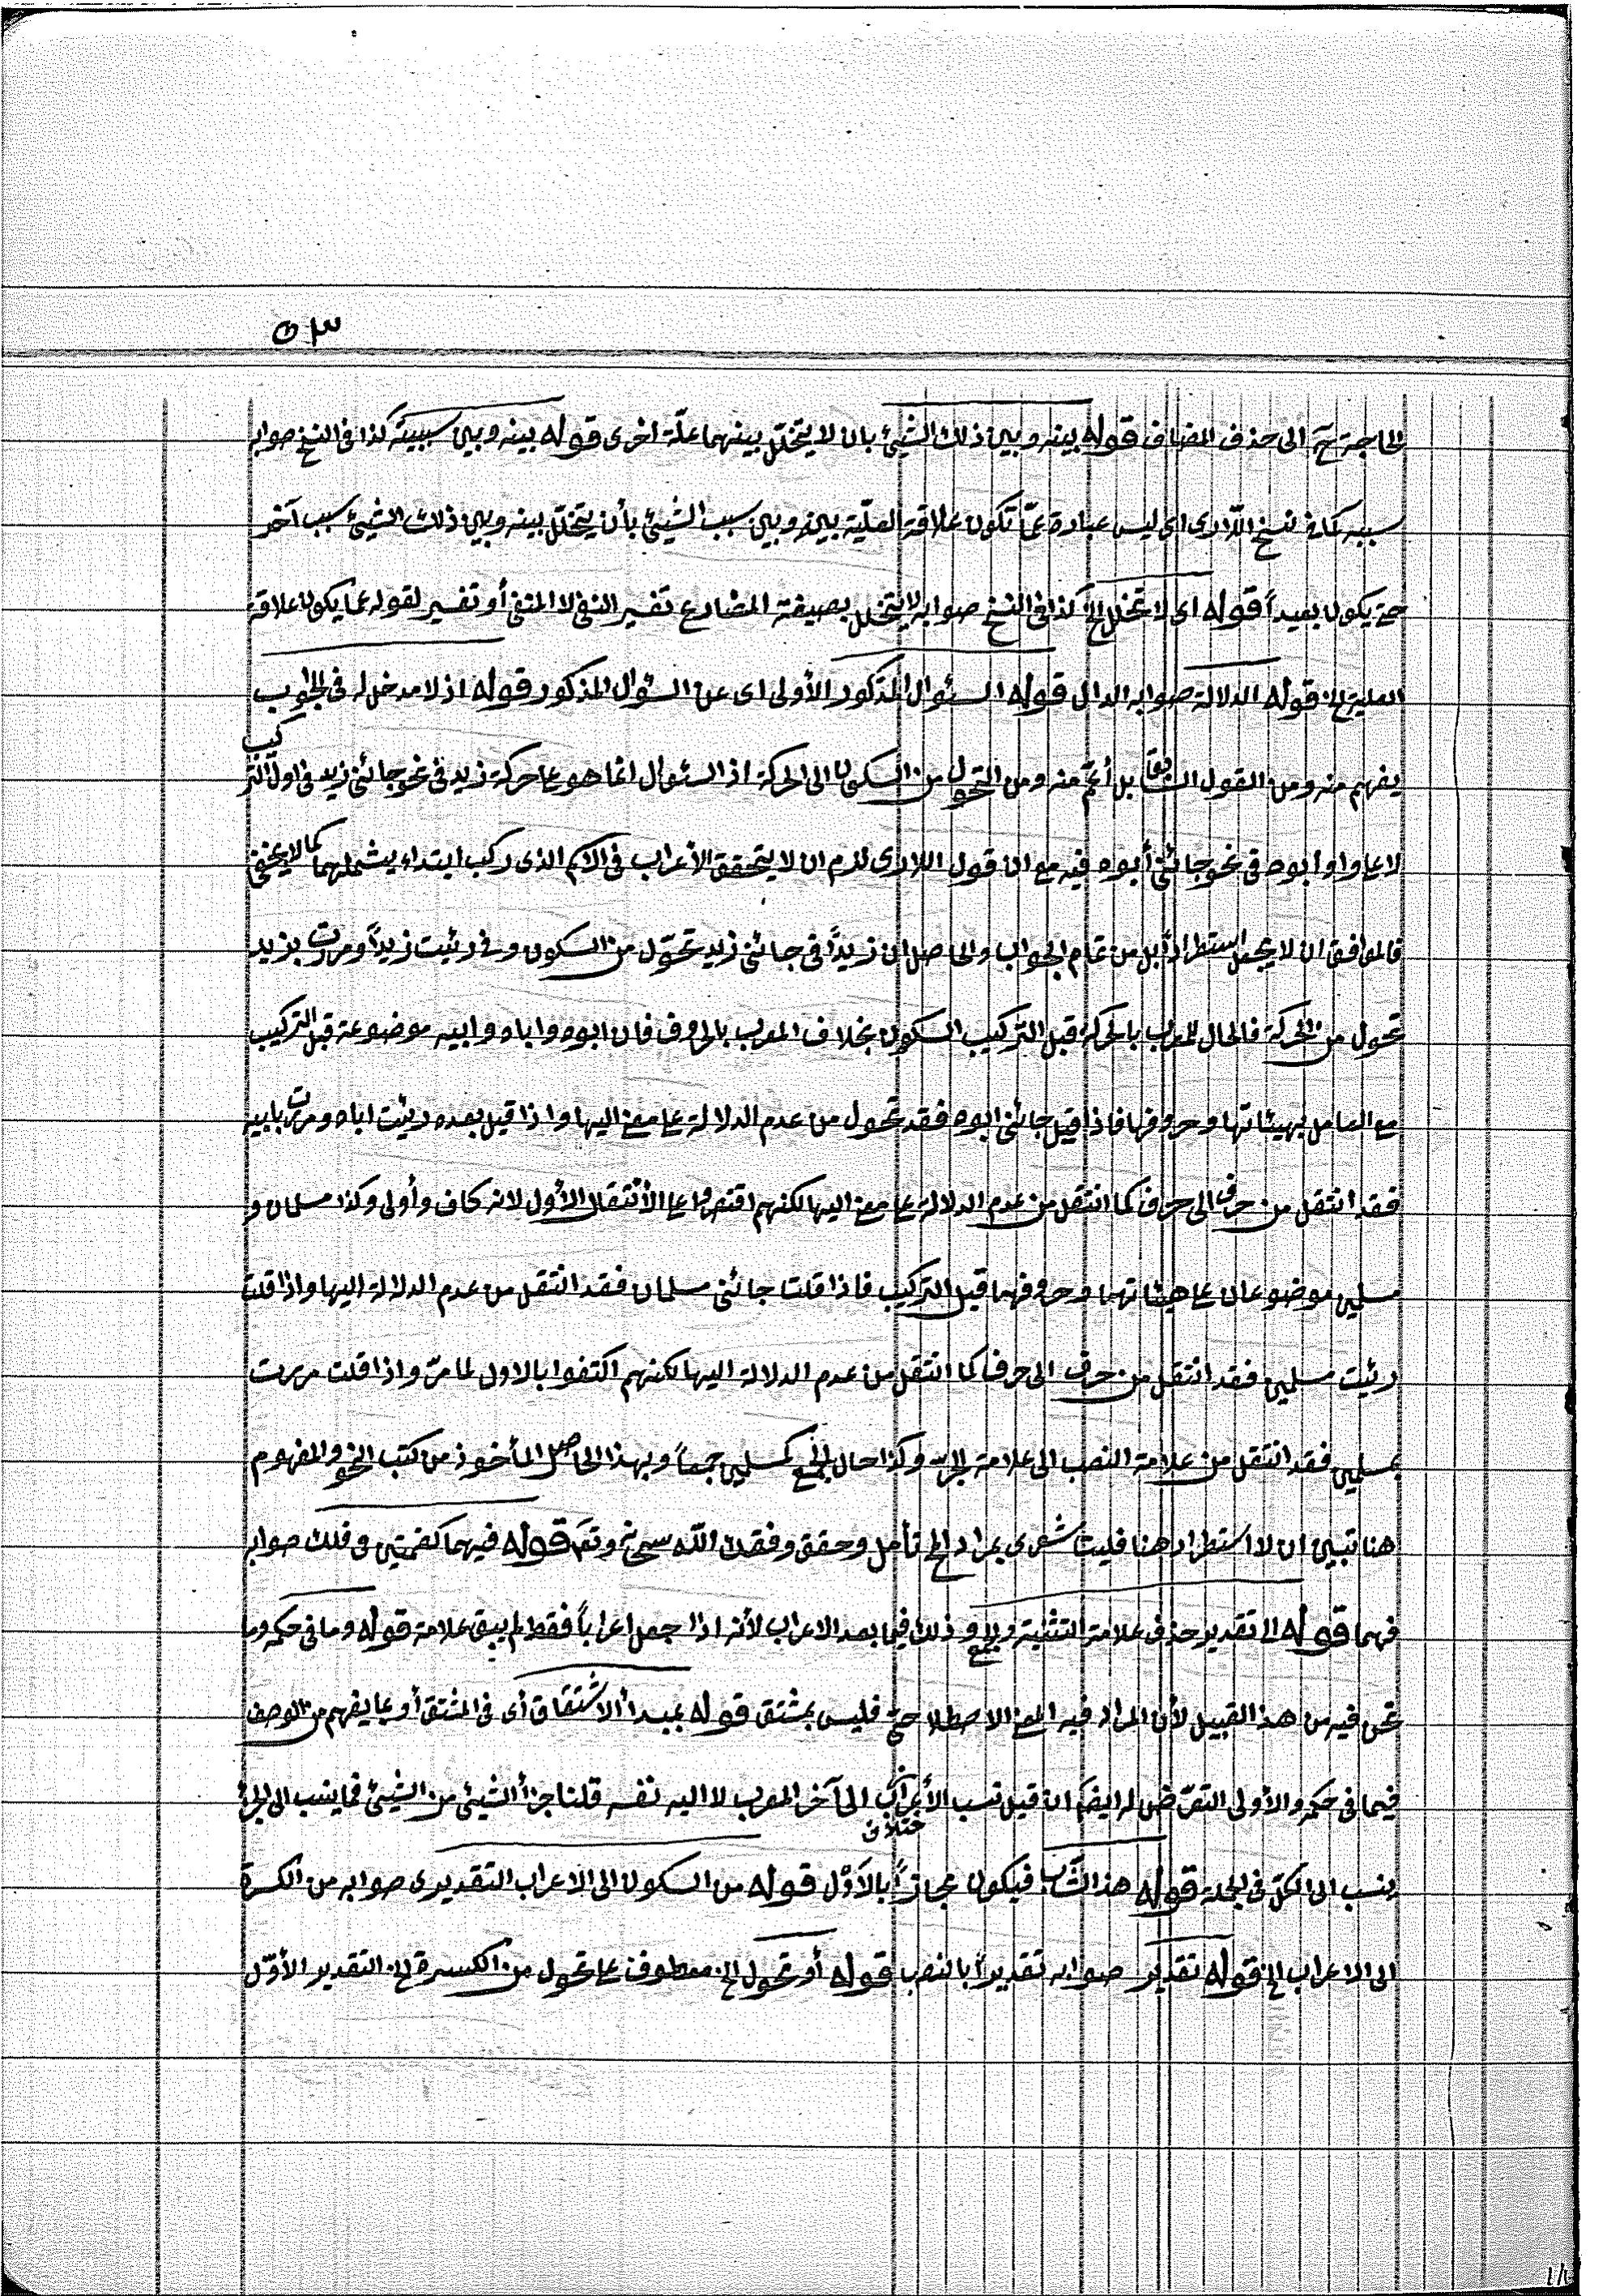 ٥٣
الحاجة ح الى حذف المضاف قوله بينه وبين ذلك الشيئ بان لا يتخلل بينهما علّة اخرى قوله بينه وبين سببيته كذا فى النسخ صوابه
سببه كما فى نسخ اللّارى اى ليس عبارة عمّا تكون علاقة العليّة بينه وبين سبب الشيئ بأن يتخلل بينه وبين ذلك الشيئ سبب آخر
حتى يكون بعيداً قوله اى لا تخلل الخ كذا فى النسخ صوابه لا يتخلل بصيغة المضارع تفسير النفى لا المنفى أو تفسير لقوله عما يكون علاقة
العلية الخ قوله الدلالة صوابه الدال قوله السئوال المذكور الأولى اى عن السئوال المذكور قوله اذ لا مدخل له فى الجواب
يفهم منه ومن القول السابق بل أعمّ منه ومن التحول من السكون الى الحركة اذ السئوال انما هو عا حركة زيد فى نحو جائنى زيد فى اول التركيب
لا عا واو أبوه فى نحو جائنى أبوه فيه مع ان قول اللارى لزم ان لا يتحقق الأعراب فى الاسم الذى ركب ابتداء يشملهما كما لا يخفى
فالموافق ان لا يجعل استطراداً بل من تمام الجواب والحاصل ان زيداً فى جائنى زيد تحوّل من السكون وفى رئيت زيداً ومررت بزيد
تحول من الحركة فالحال للمعرب بالحركة قبل التركيب السكون بخلاف المعرب بالحروف فان ابوه واباه وابيه موضوعة قبل التركيب
مع العامل بهيئاتها وحروفها فاذا قيل جائنى ابوه فقد تحول من عدم الدلالة عا معنى اليها واذا قيل بعده رئيت اباه ومررت بابيه
فقد انتقل من حرف الى حرف كما انتقل من عدم الدلالة عا معنى اليها لكنهم اقتصروا عا الأنتقال الأول لانه كاف وأولى وكذا مسلمان و
مسلمين موضوعان عا هيئاتهما وحروفهما قبل التركيب فاذا قلت جائنى مسلمان فقد انتقل من عدم الدلالة اليها واذا قلت
رئيت مسلمين فقد انتقل من حرف الى حرف كما انتقل من عدم الدلالة اليها لكنهم اكتفوا بالاول لما مرّ واذا قلت مررت
بمسلمين فقد انتقل من علامة النصب الى علامة الجر وكذا حال الجمع كمسلمين جمعاً وبهذا الحاصل المأخوذ من كتب النحو والمفهوم
هنا تبين ان لا استطراد هنا فليت شعرى بمراد الخ تأمل وحقق وفقك اللّه سبحانه وتع قوله فيهما كضمتين وفلك صوابه
فهما قوله الى تقدير حذف علامة التثنية والجمع وذلك فيما بعد الاعراب لأنه اذا جعل اعراباً فقط لم يبق علامة قوله وما فى حكمه وما
نحن فيه من هذا القبيل لأن المراد فيه المعنى الاصطلاحى فليس بمشتق قوله بمبدأ الاشتقاق أى فى المشتق أو بما يفهم من الوصف
فيما فى حكمه والأولى التعرّض له ايضا ان قيل نسب الأختلاف الى آخر المعرب لا اليه نفسه قلنا جزأ الشيئ من الشيئ فما ينسب الى الجزء
ينسب الى الكل فى الجملة قوله هذا الثانى فيكون مجازاً بالأوّل قوله من السكون الى الاعراب التقديرى صوابه من الكسرة
الى الاعراب الخ قوله تقدير صوابه تقديراً بالنصب قوله أو تحول الخ معطوف عا تحول من الكسرة الخ التقدير الأوّل